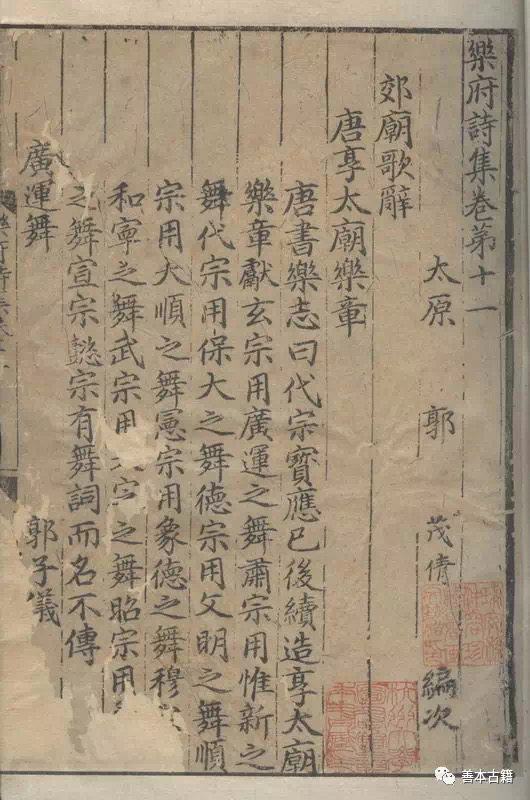 樂府詩集卷第十一
太原 郭 茂倩 編次
郊廟歌辭
唐享太廟樂章
唐書樂志曰代宗寶應已後續造享太廟
樂章獻玄宗用廣運之舞肅宗用惟新之
舞代宗用保大之舞德宗用文明之舞順
宗用大順之舞憲宗用象德之舞穆
和寧之舞武宗用之舞昭宗用
之舞宣宗懿宗有舞詞而名不傳
廣運舞 郭子儀
善本古籍